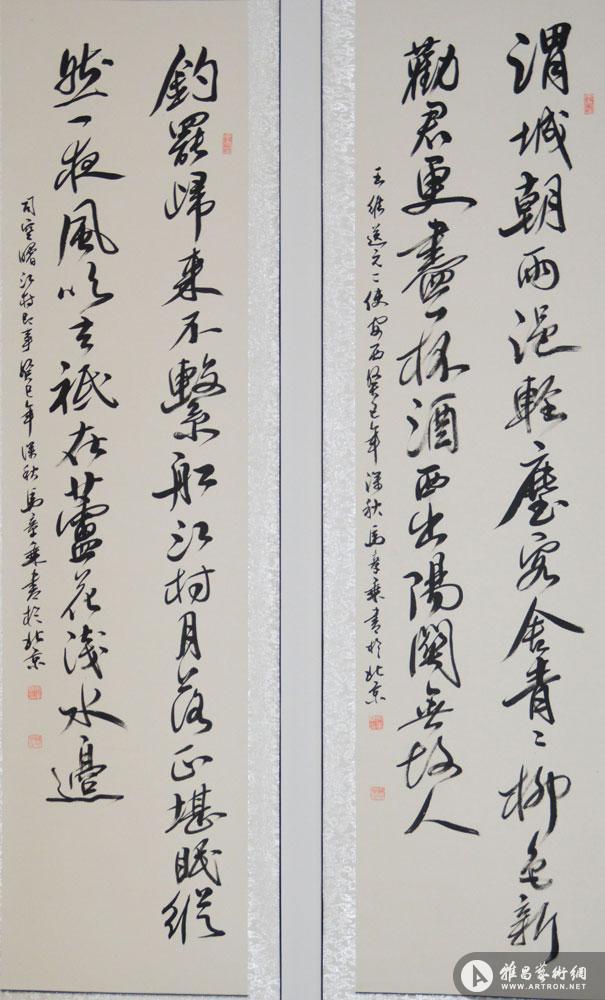 渭城朝雨浥輕塵客舍青〻柳色新
勸君更盡一杯酒西出陽關無故人
王維送元二使安西癸巳年深秋馬章乘書於北京
釣罷歸來不繫船江村月落正堪眠縱
然一夜風吹去祇在蘆花淺水邊
司空曙江村即事癸巳年深秋馬章乘書於北京
雅昌藝術網
WWW.ARTRON.NET